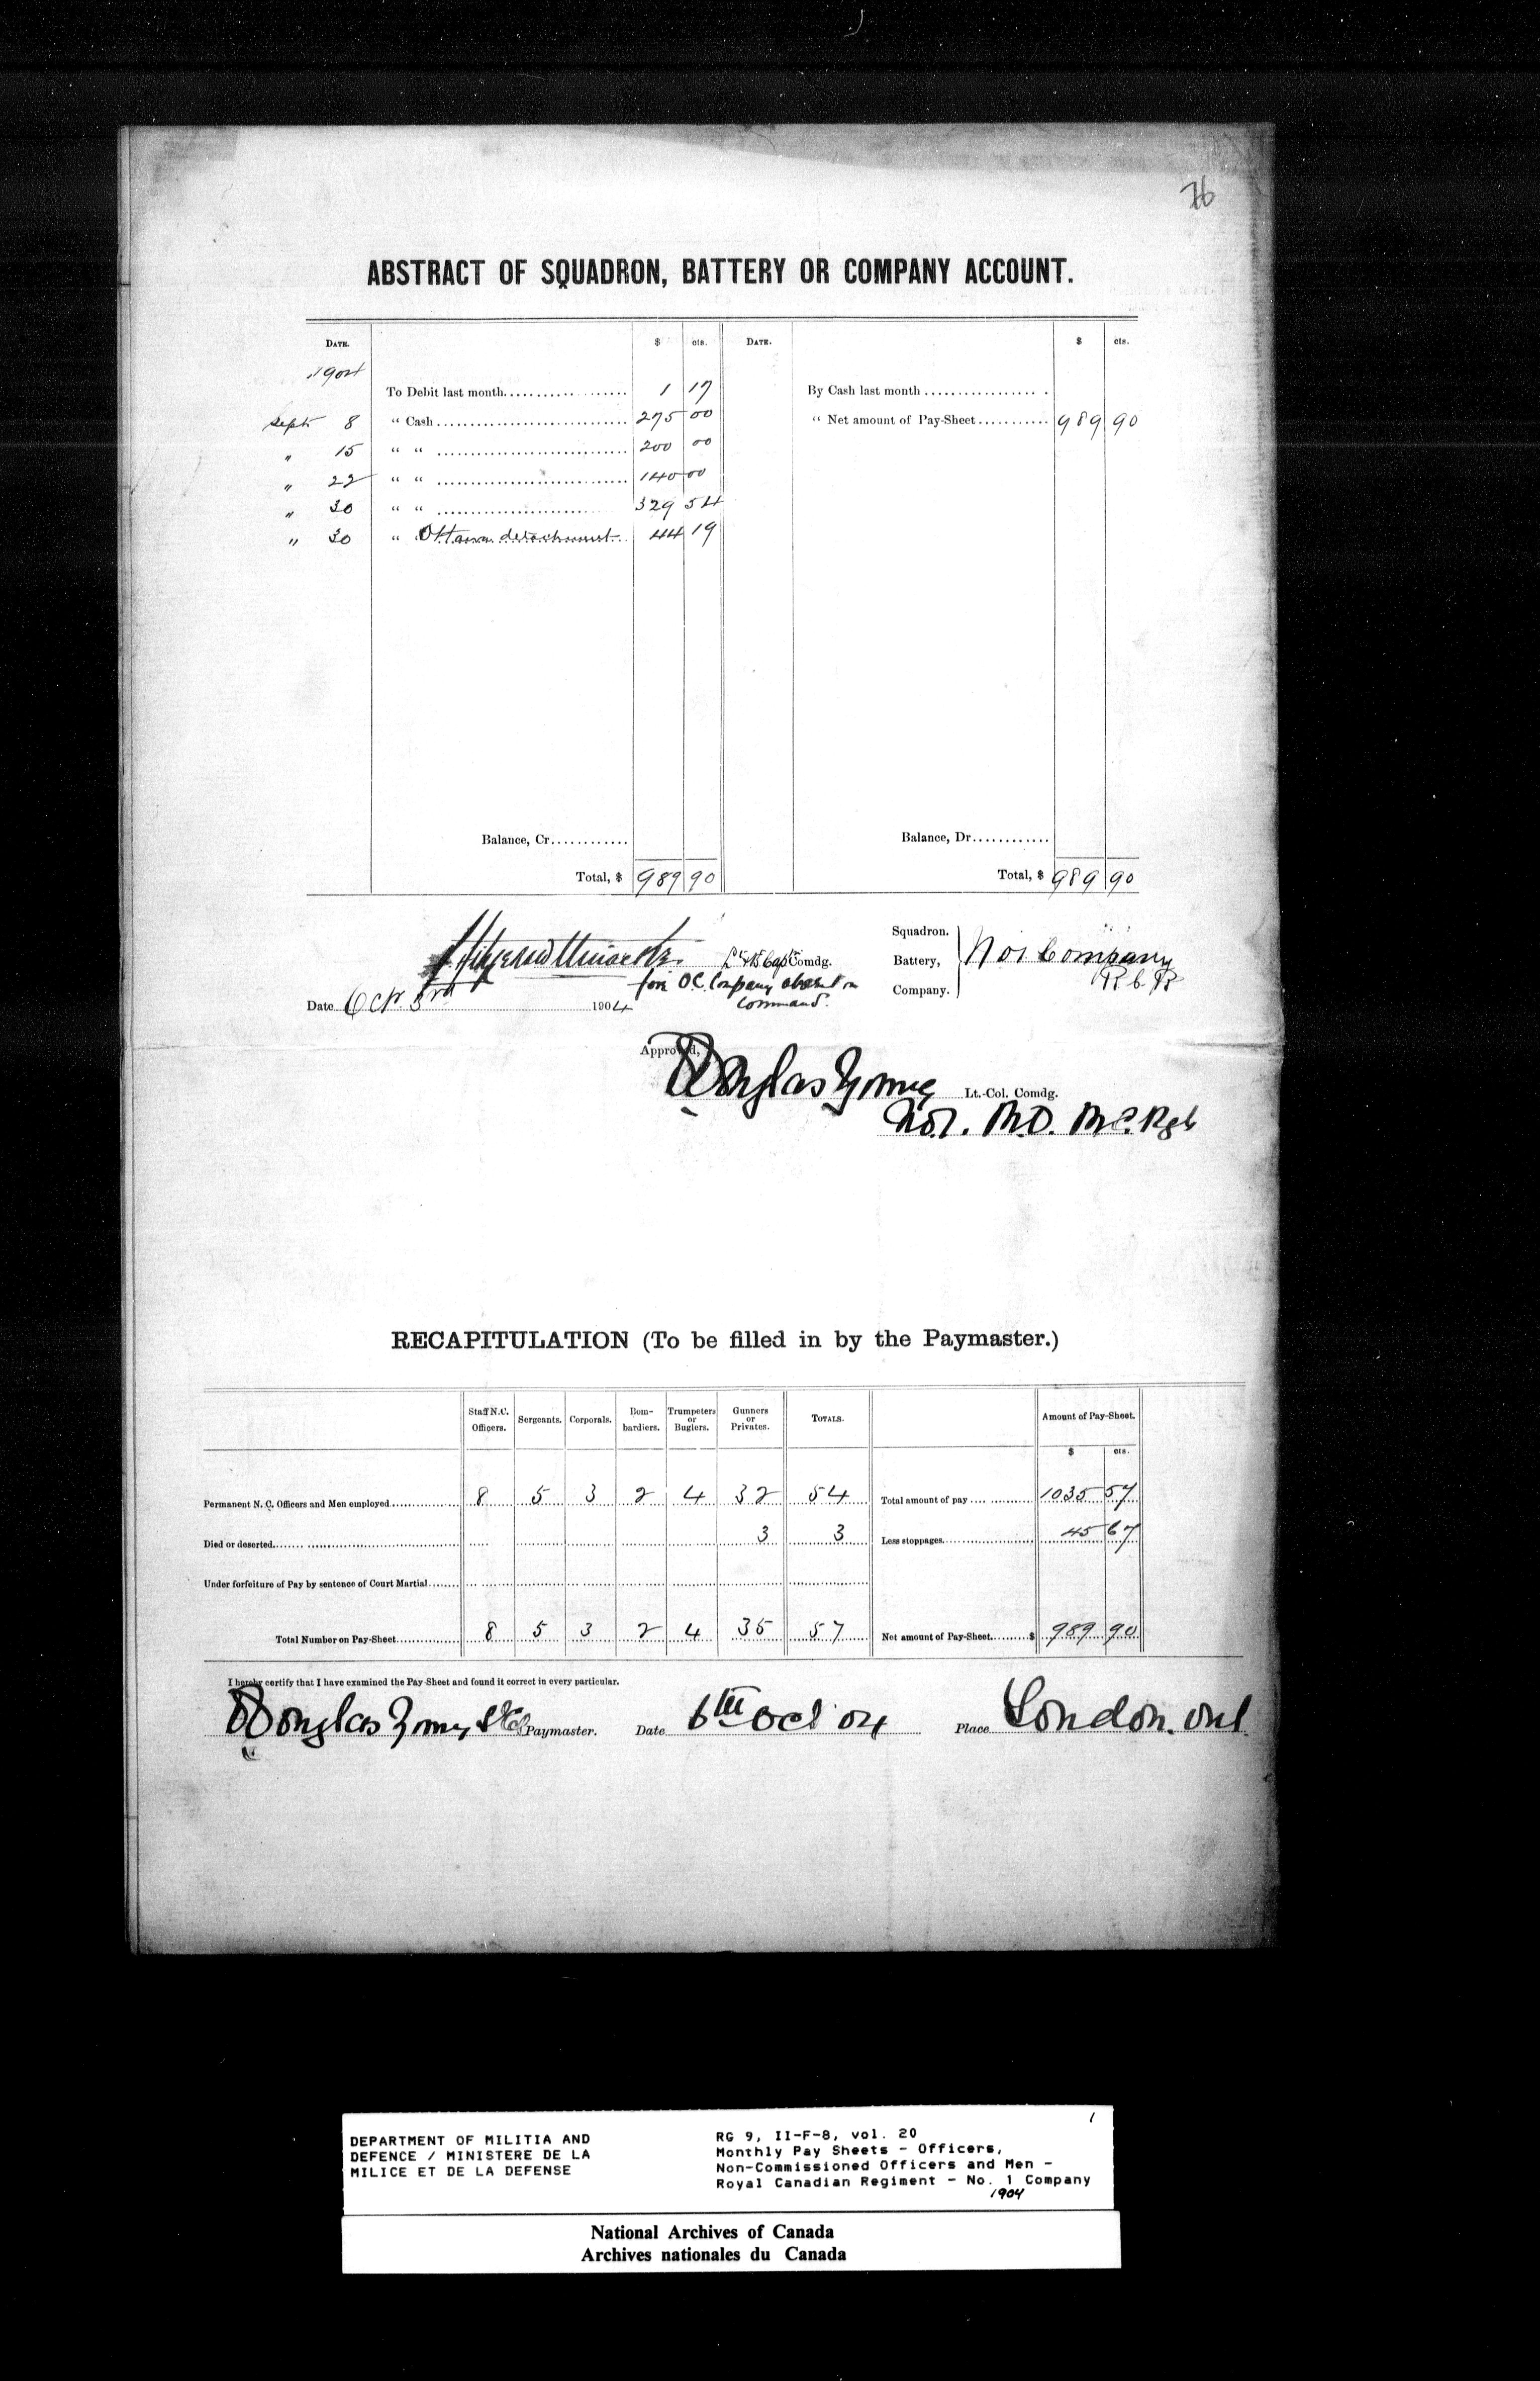 76
ABSTRACT OF SQUADRON, BATTERY OR COMPANY ACCOUNT.
DATE. $ cts. DATE. $ cts.
1904
To Debit last month 1 17 By Cash last month
Sept 8 " Cash 275 00 " Net amount of Pay-Sheet 989 90
" 15 " " 200 00
" 22 " " 140 00
" 30 " " 329 54
" 30 " Ottawa detachment 44 19
Balance, Cr. Balance, Dr.
Total, $ 989 90 Total, $ 989 90
Lt & Bt Capt Comdg.
for O.C. Company absent on
Command.
Date Oct 3rd 1904
Squadron.
Battery,
Company.
No 1 Company
R C R
Approved,
Douglas Young Lt.-Col. Comdg.
No 1. R.D. R.C. Rgt
RECAPITULATION (To be filled in by the Paymaster.)
Staff N.C. Officers. Sergeants. Corporals. Bombardiers. Trumpeters or Buglers. Gunners or Privates. TOTALS. Amount of Pay-Sheet.
$ cts.
Permanent N. C. Officers and Men employed 8 5 3 2 4 32 54 Total amount of pay 1035 57
Died or deserted 3 3 Less stoppages 45 67
Under forfeiture of Pay by sentence of Court Martial
Total Number on Pay-Sheet 8 5 3 2 4 35 57 Net amount of Pay-Sheet $ 989 90
I hereby certify that I have examined the Pay-Sheet and found it correct in every particular.
Douglas Young Lt Col Paymaster. Date 6th Oct 04 Place London. Ont.
1
DEPARTMENT OF MILITIA AND
DEFENCE / MINISTERE DE LA
MILICE ET DE LA DEFENSE
RG 9, II-F-8, vol. 20
Monthly Pay Sheets - Officers,
Non-Commissioned Officers and Men -
Royal Canadian Regiment - No. 1 Company
1904
National Archives of Canada
Archives nationales du Canada